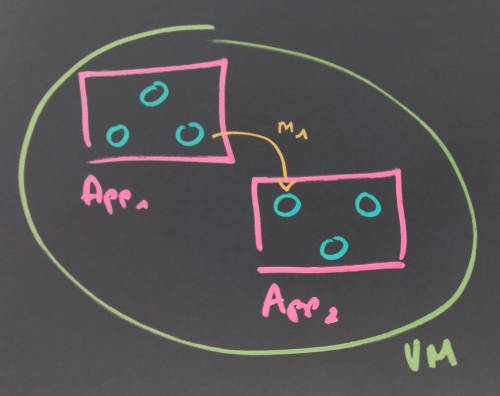 m₁
App₁
App₂
VM